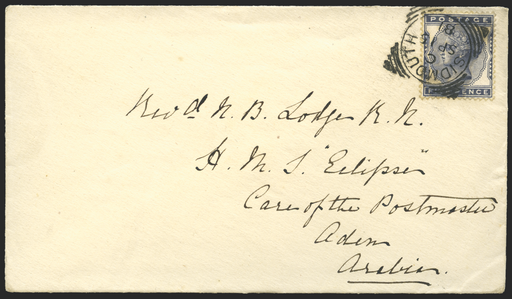 POSTAGE
SIDMOUTH
C
SP 5
81
PENCE
Revd N. B. Lodge R.N.
H. M. S "Eclipse"
Care of the Postmaster
Aden
Arabia.